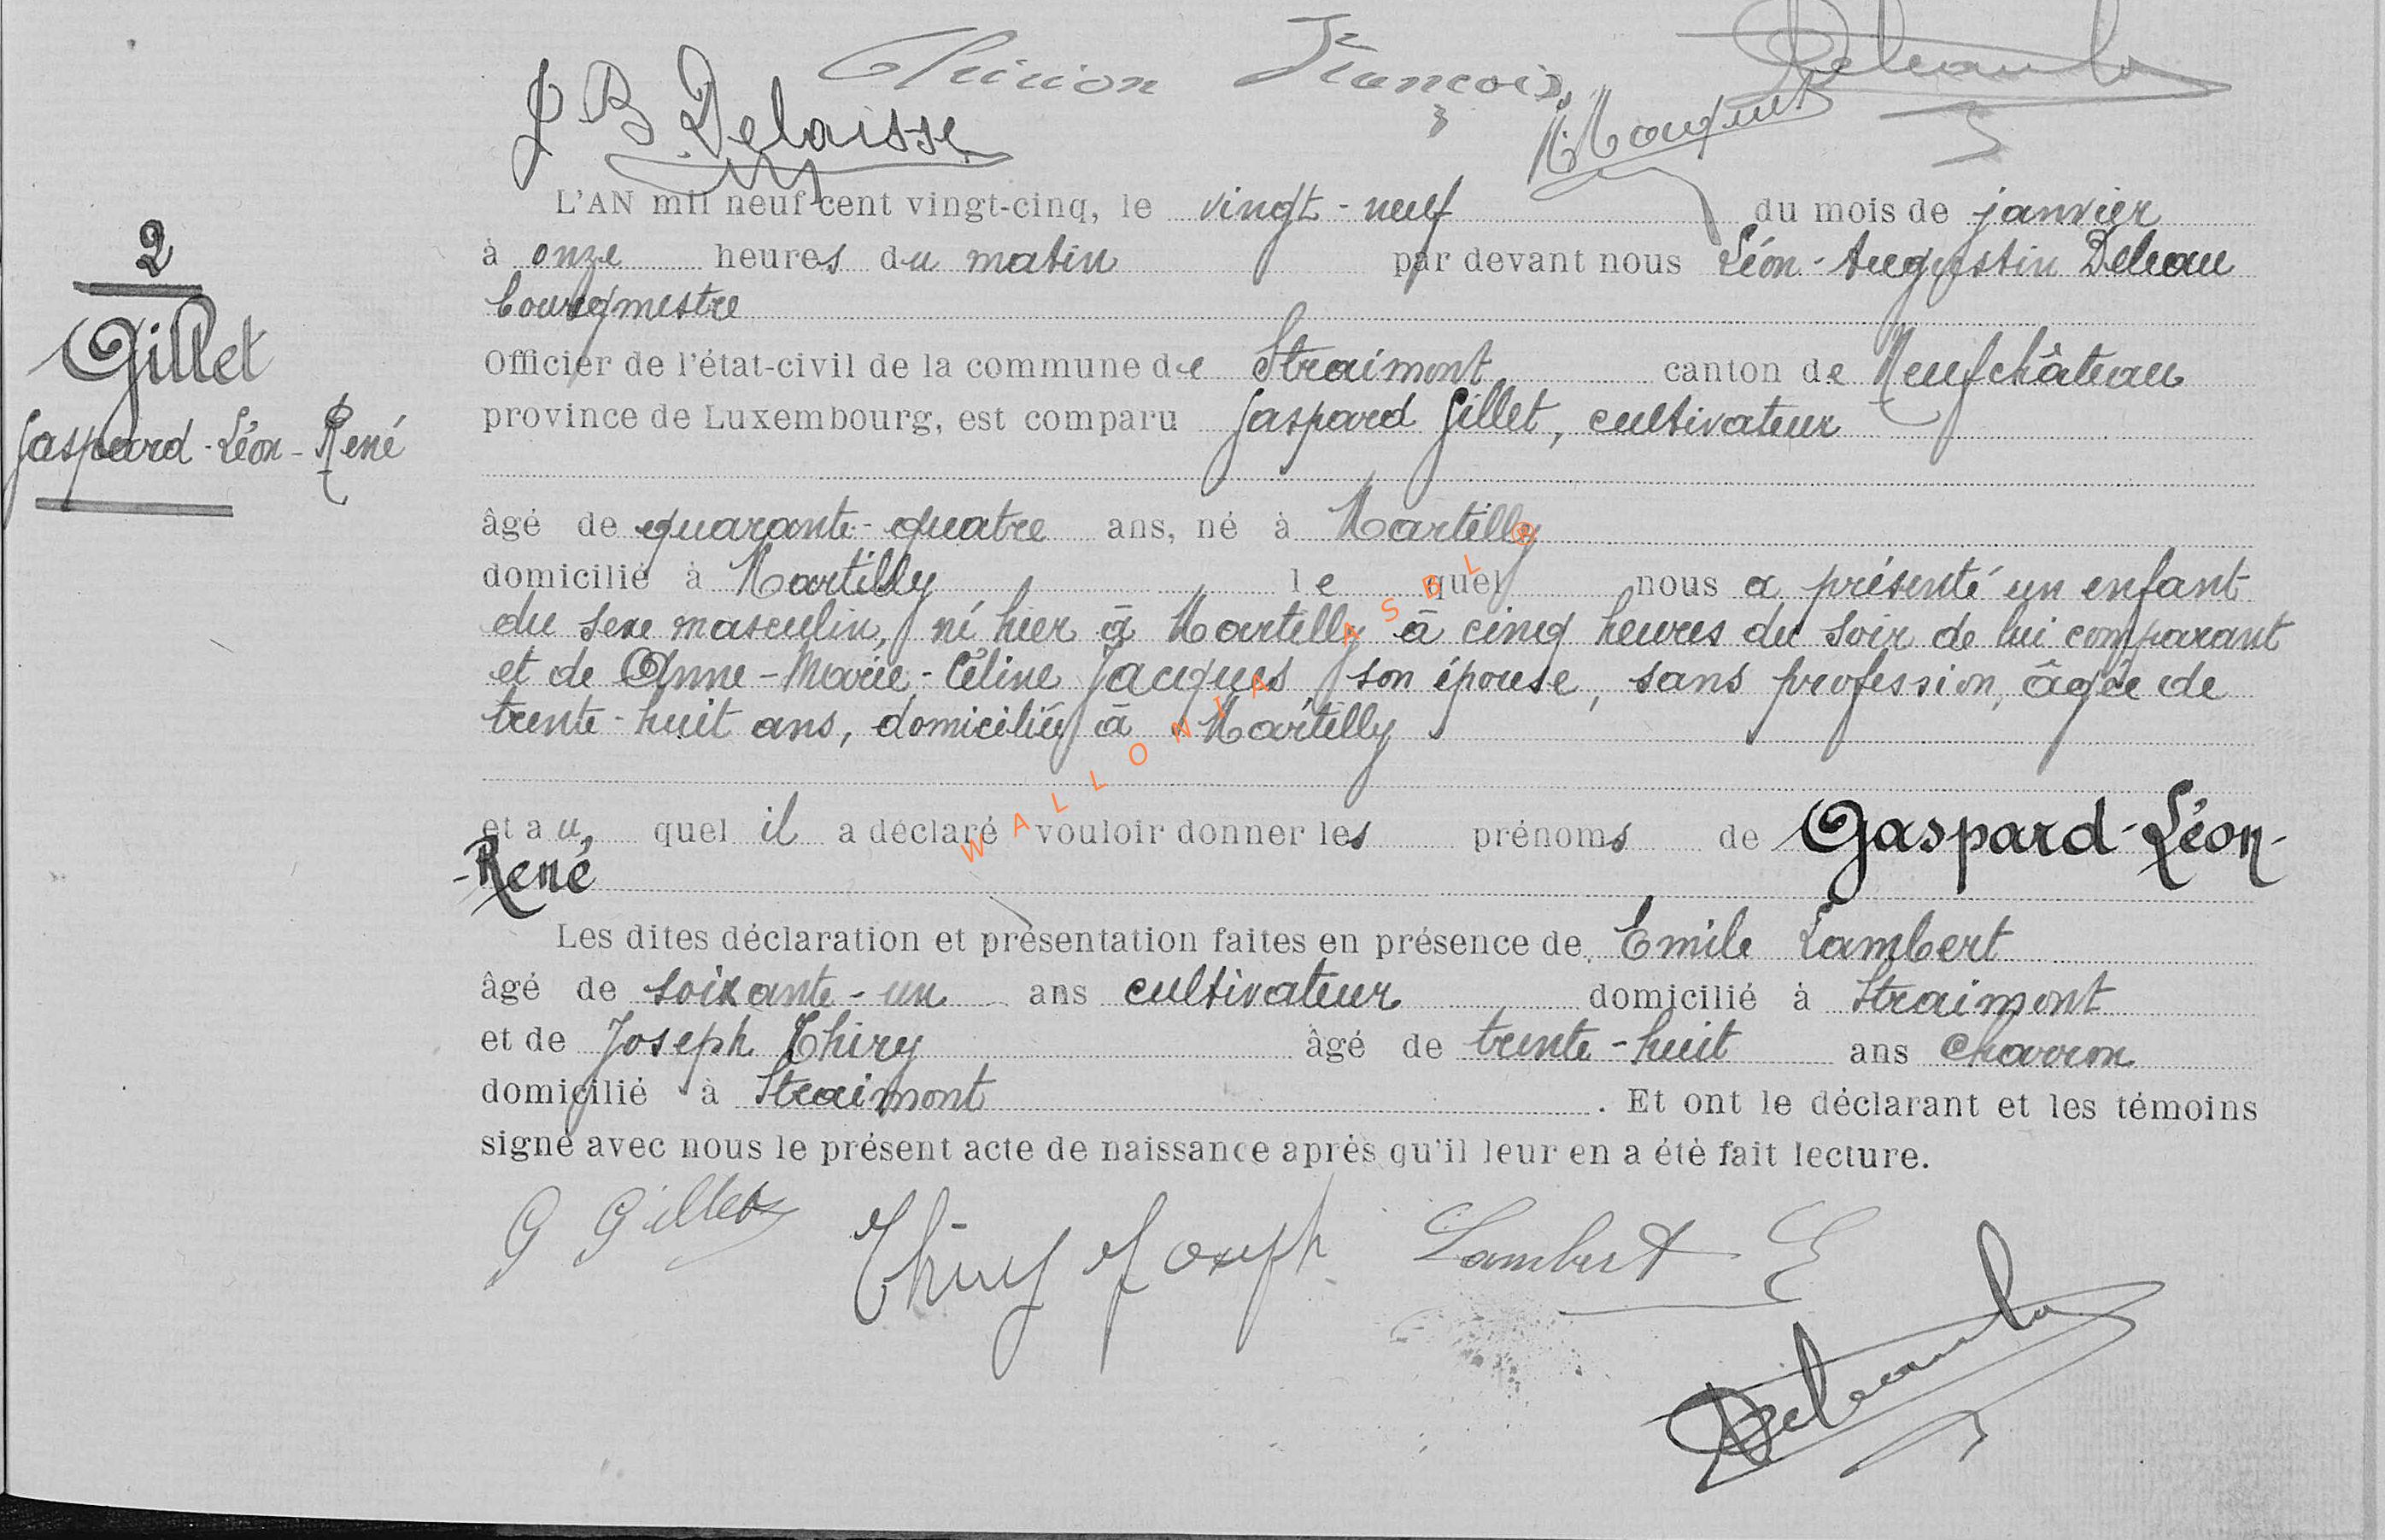 Thirion François
J B Delaisse
L'AN mil neuf cent vingt-cinq, le vingt-neuf du mois de janvier
2
à onze heures du matin par devant nous Léon-Augustin Deleau
bourgmestre
Gillet
Officier de l'état-civil de la commune de Straimont canton de Neufchâteau
Gaspard-Léon-René
province de Luxembourg, est comparu Gaspard Gillet, cultivateur
âgé de quarante-quatre ans, né à Martilly
domicilié à Martilly le quel nous a présenté un enfant
du sexe masculin, né hier à Martilly à cinq heures du soir de lui comparant
et de Anne-Marie-Céline Jacques son épouse, sans profession, âgée de
trente-huit ans, domiciliée à Martilly
et au quel il a déclaré vouloir donner les prénoms de Gaspard-Léon-
-René
Les dites déclaration et présentation faites en présence de Emile Lambert
âgé de soixante-un ans cultivateur domicilié à Straimont
et de Joseph Thiry âgé de trente-huit ans charron
domicilié à Straimont. Et ont le déclarant et les témoins
signé avec nous le présent acte de naissance après qu'il leur en a été fait lecture.
G Gillet Thiry Joseph Lambert E
WALLONIA ASBL ®